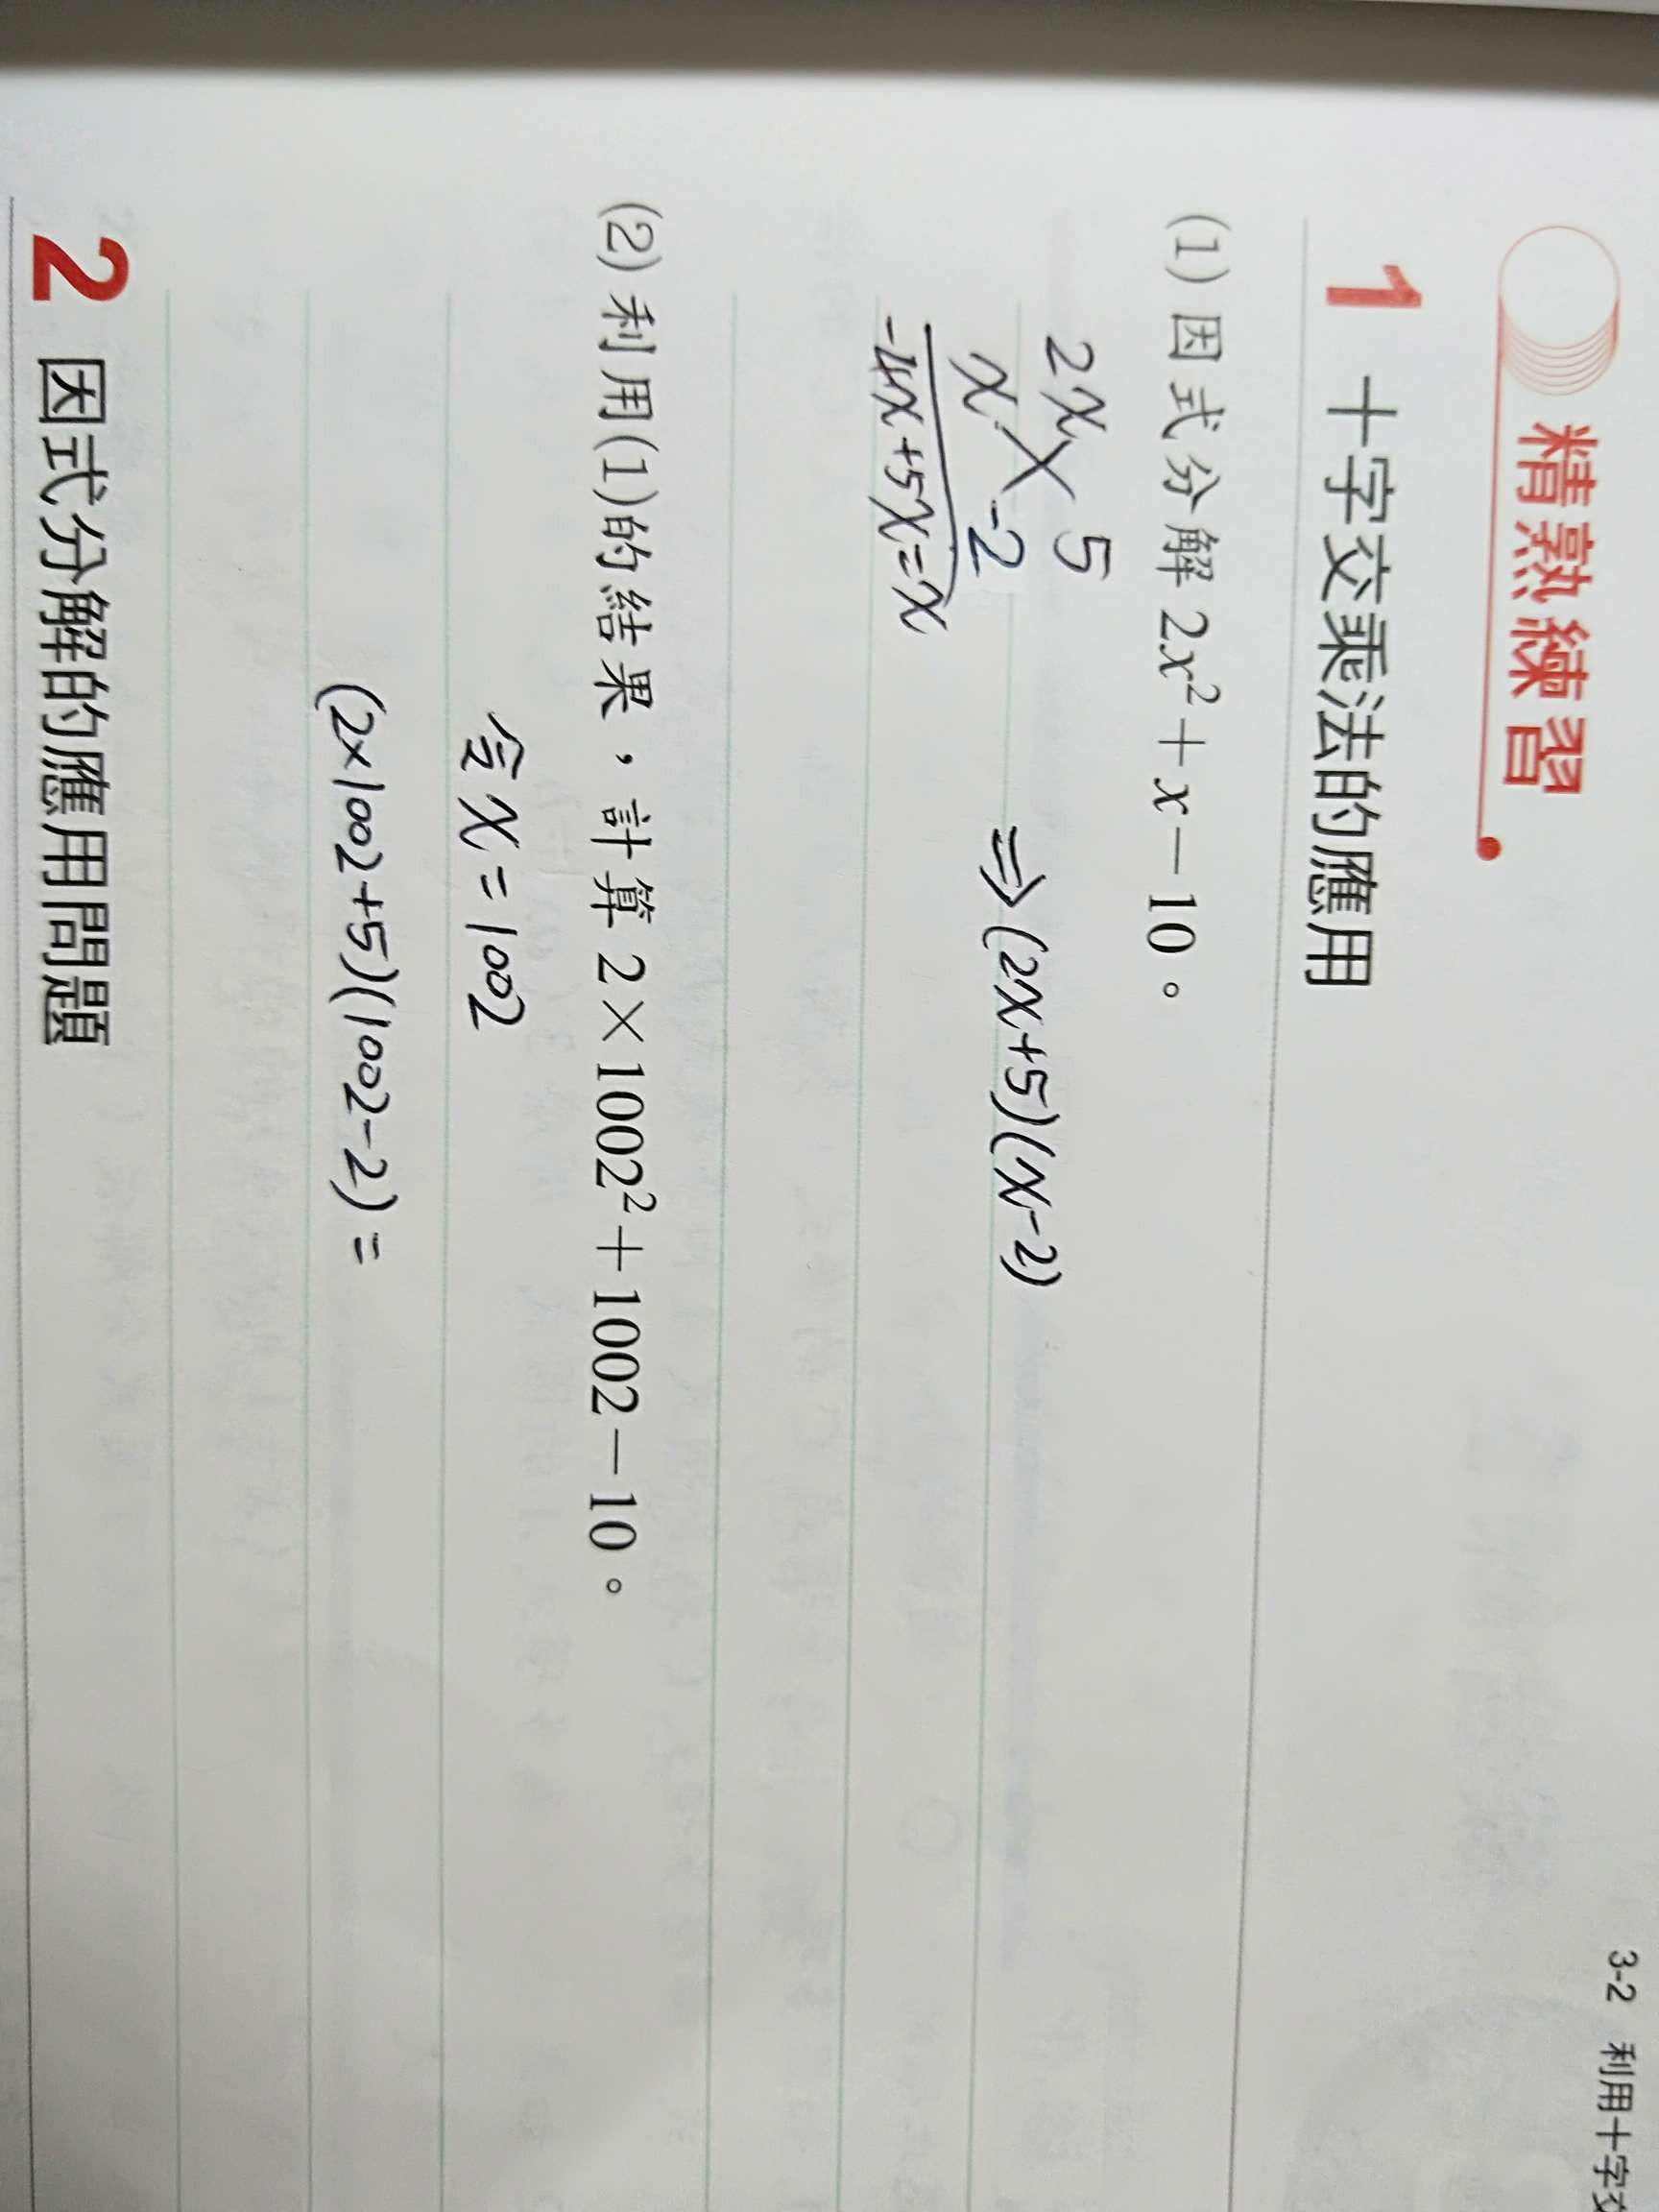 3-2 利用十字
精熟練習
1 十字交乘法的應用
(1) 因式分解 2x²+x-10。
2x 5
x -2
-4x+5x=x
⇒(2x+5)(x-2)
(2) 利用(1)的結果，計算 2×1002²+1002-10。
令x=1002
(2×1002+5)(1002-2)=
2 因式分解的應用問題